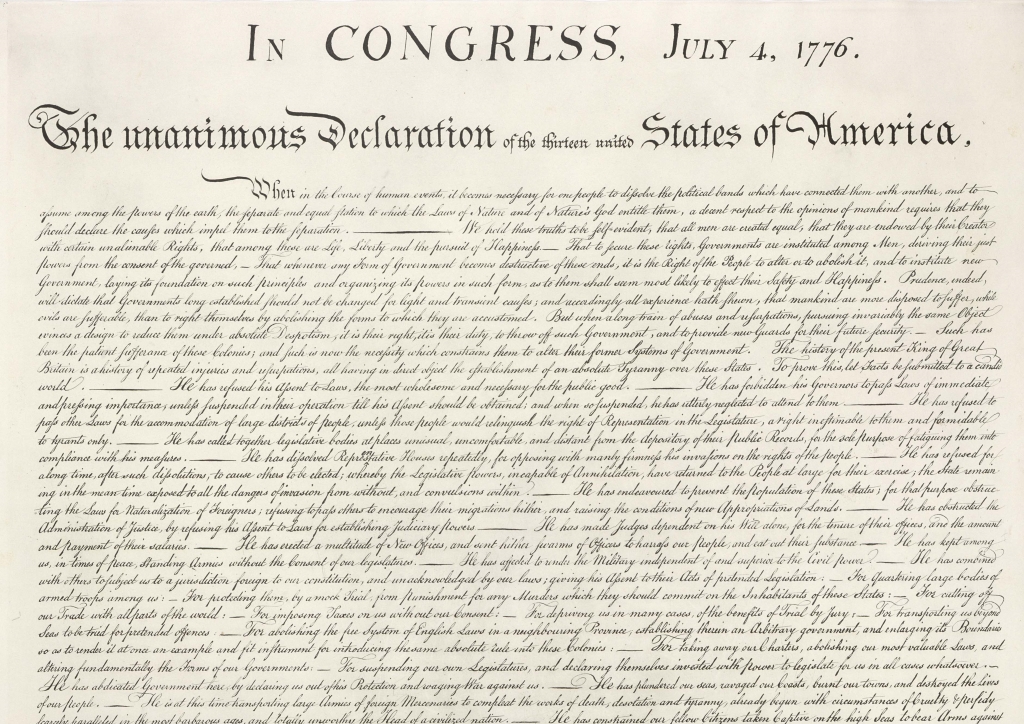 IN CONGRESS, JULY 4, 1776.
The unanimous Declaration of the thirteen united States of America,
When in the Course of human events, it becomes necessary for one people to dissolve the political bands which have connected them with another, and to
assume among the powers of the earth, the separate and equal station to which the Laws of Nature and of Nature's God entitle them, a decent respect to the opinions of mankind requires that they
should declare the causes which impel them to the separation. ———— We hold these truths to be self-evident, that all men are created equal, that they are endowed by their Creator
with certain unalienable Rights, that among these are Life, Liberty and the pursuit of Happiness. — That to secure these rights, Governments are instituted among Men, deriving their just
powers from the consent of the governed, — That whenever any Form of Government becomes destructive of these ends, it is the Right of the People to alter or to abolish it, and to institute new
Government, laying its foundation on such principles and organizing its powers in such form, as to them shall seem most likely to effect their Safety and Happiness. Prudence, indeed,
will dictate that Governments long established should not be changed for light and transient causes; and accordingly all experience hath shewn, that mankind are more disposed to suffer, while
evils are sufferable, than to right themselves by abolishing the forms to which they are accustomed. But when a long train of abuses and usurpations, pursuing invariably the same Object
evinces a design to reduce them under absolute Despotism, it is their right, it is their duty, to throw off such Government, and to provide new Guards for their future security. — Such has
been the patient sufferance of these Colonies; and such is now the necessity which constrains them to alter their former Systems of Government. The history of the present King of Great
Britain is a history of repeated injuries and usurpations, all having in direct object the establishment of an absolute Tyranny over these States. To prove this, let Facts be submitted to a candid
world. ——— He has refused his Assent to Laws, the most wholesome and necessary for the public good. ——— He has forbidden his Governors to pass Laws of immediate
and pressing importance, unless suspended in their operation till his Assent should be obtained; and when so suspended, he has utterly neglected to attend to them. ——— He has refused to
pass other Laws for the accommodation of large districts of people, unless those people would relinquish the right of Representation in the Legislature, a right inestimable to them and formidable
to tyrants only. ——— He has called together legislative bodies at places unusual, uncomfortable, and distant from the depository of their Public Records, for the sole purpose of fatiguing them into
compliance with his measures. ——— He has dissolved Representative Houses repeatedly, for opposing with manly firmness his invasions on the rights of the people. ——— He has refused for
a long time, after such dissolutions, to cause others to be elected; whereby the Legislative powers, incapable of Annihilation, have returned to the People at large for their exercise; the State remain
ing in the mean time exposed to all the dangers of invasion from without, and convulsions within. ——— He has endeavoured to prevent the population of these States; for that purpose obstruc
ting the Laws for Naturalization of Foreigners; refusing to pass others to encourage their migrations hither, and raising the conditions of new Appropriations of Lands. ——— He has obstructed the
Administration of Justice, by refusing his Assent to Laws for establishing Judiciary powers. ——— He has made Judges dependent on his Will alone, for the tenure of their offices, and the amount
and payment of their salaries. ——— He has erected a multitude of New Offices, and sent hither swarms of Officers to harrass our people, and eat out their substance. ——— He has kept among
us, in times of peace, Standing Armies without the Consent of our legislatures. ——— He has affected to render the Military independent of and superior to the Civil power. ——— He has combined
with others to subject us to a jurisdiction foreign to our constitution, and unacknowledged by our laws; giving his Assent to their Acts of pretended Legislation: — For Quartering large bodies of
armed troops among us: — For protecting them, by a mock Trial, from punishment for any Murders which they should commit on the Inhabitants of these States: — For cutting off
our Trade with all parts of the world: — For imposing Taxes on us without our Consent: — For depriving us in many cases, of the benefits of Trial by Jury: — For transporting us beyond
Seas to be tried for pretended offences: — For abolishing the free System of English Laws in a neighbouring Province, establishing therein an Arbitrary government, and enlarging its Boundaries
so as to render it at once an example and fit instrument for introducing the same absolute rule into these Colonies: — For taking away our Charters, abolishing our most valuable Laws, and
altering fundamentally the Forms of our Governments: — For suspending our own Legislatures, and declaring themselves invested with power to legislate for us in all cases whatsoever. —
He has abdicated Government here, by declaring us out of his Protection and waging War against us. ——— He has plundered our seas, ravaged our Coasts, burnt our towns, and destroyed the Lives
of our people. ——— He is at this time transporting large Armies of foreign Mercenaries to compleat the works of death, desolation and tyranny, already begun with circumstances of Cruelty & perfidy
scarcely paralleled in the most barbarous ages, and totally unworthy the Head of a civilized nation. ——— He has constrained our fellow Citizens taken Captive on the high Seas to bear Arms against